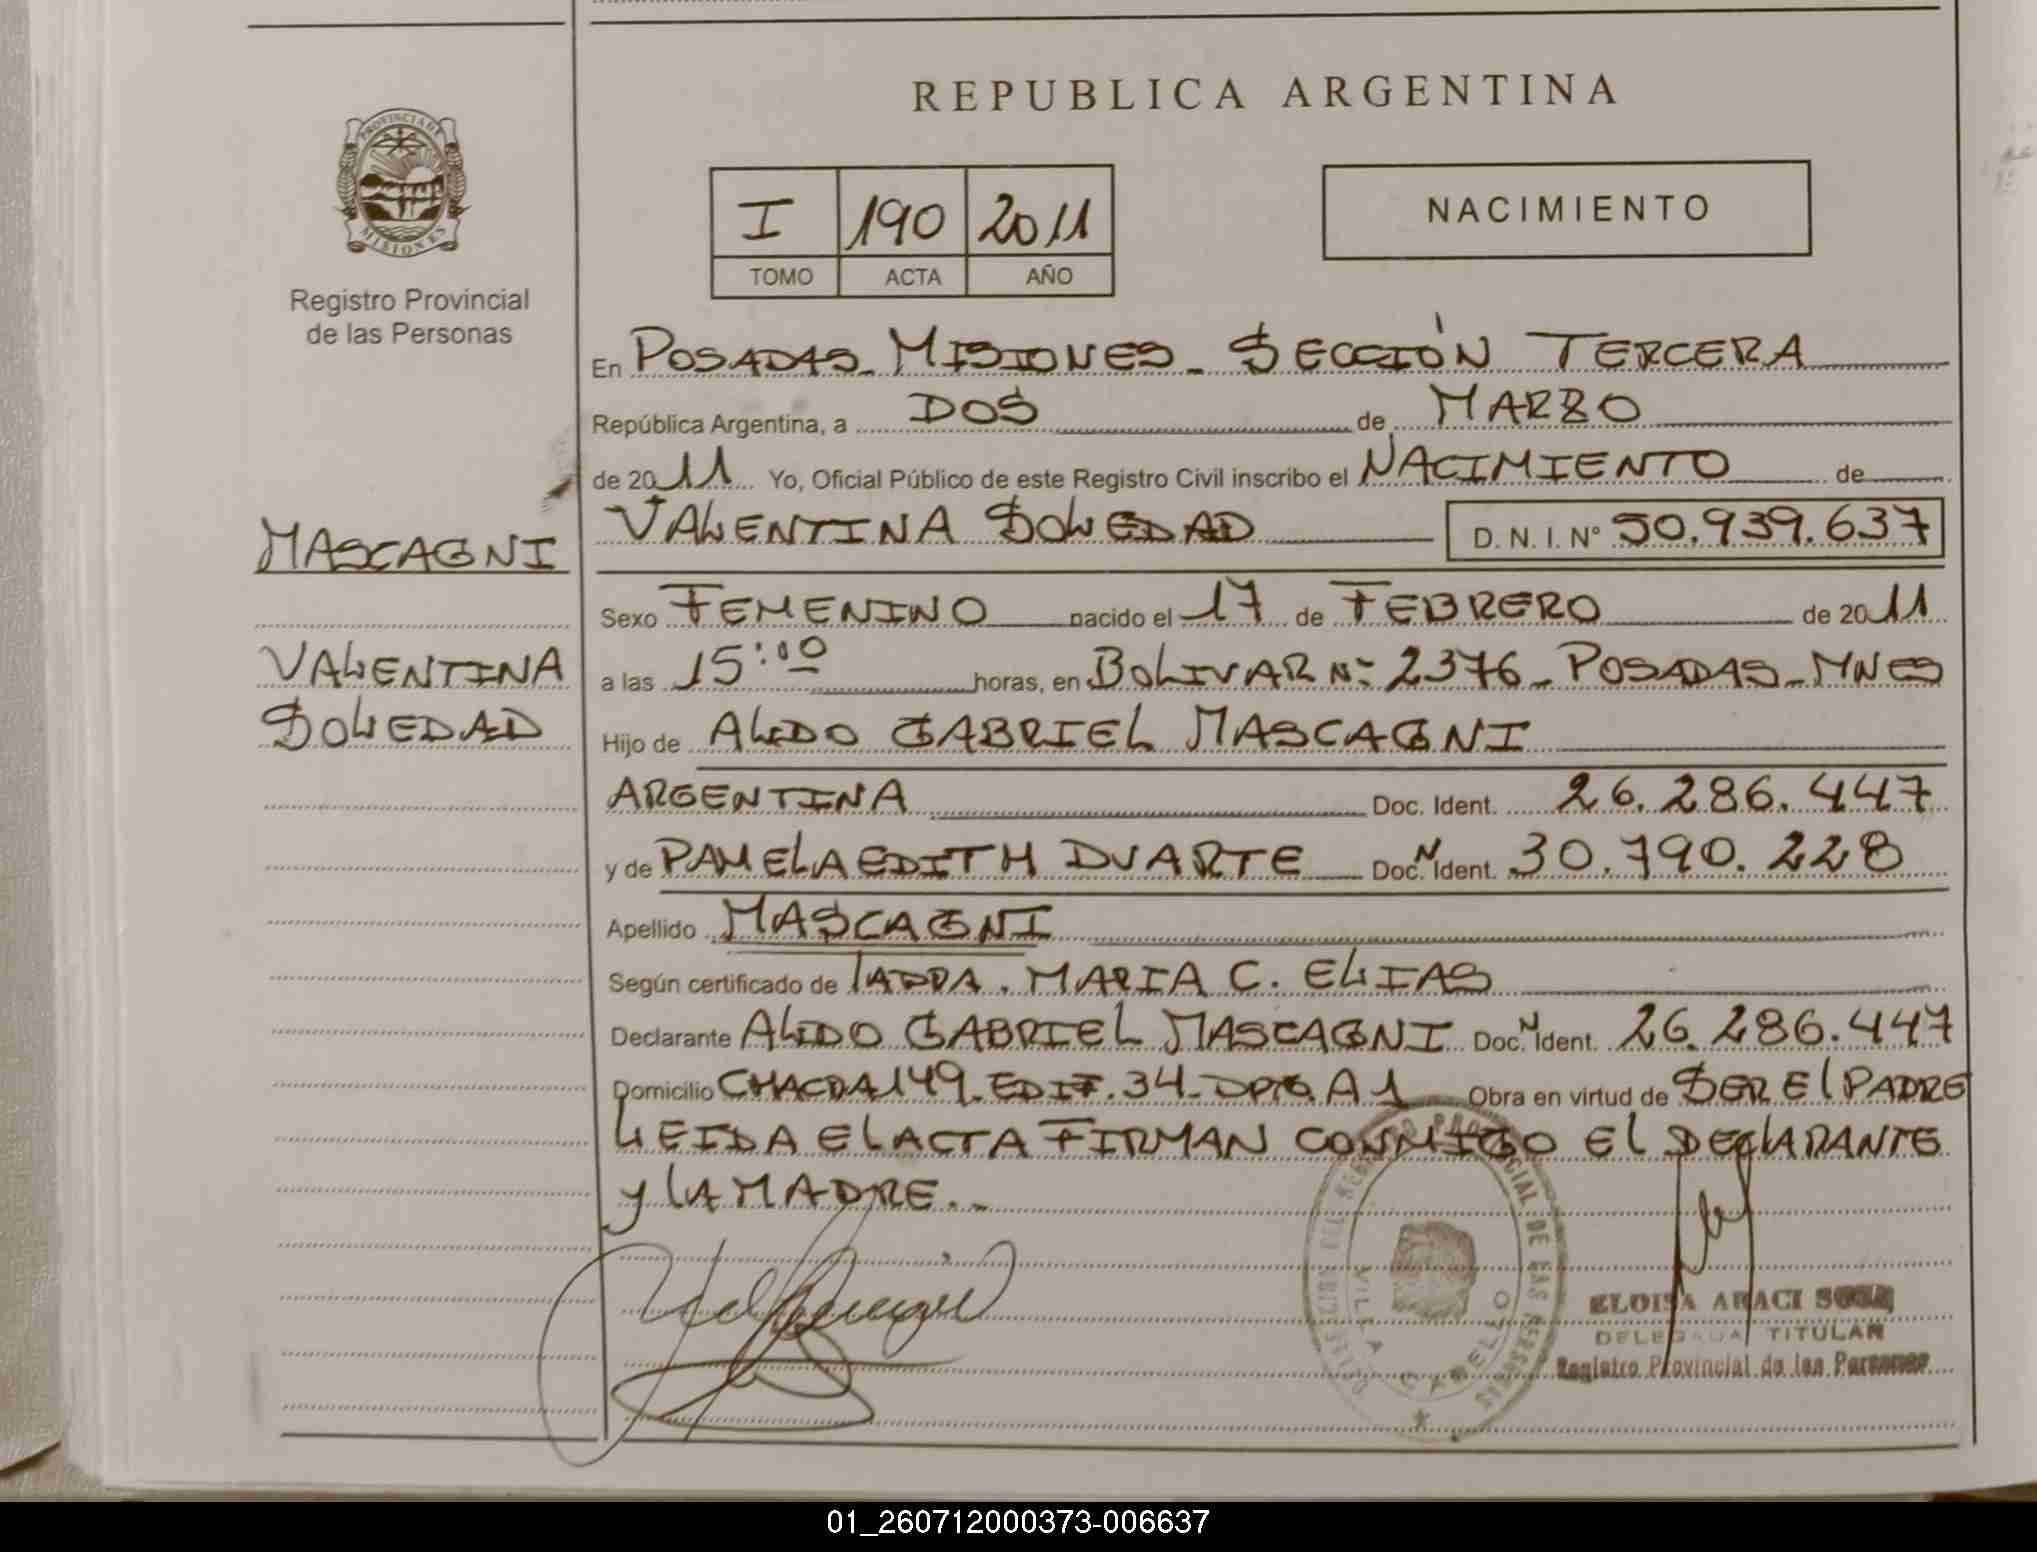 REPUBLICA ARGENTINA
PROVINCIA DE
MISIONES
Registro Provincial
de las Personas
I 190 2011
TOMO ACTA AÑO
NACIMIENTO
En POSADAS - MISIONES - SECCIÓN TERCERA
República Argentina, a DOS de MARZO
de 2011 Yo, Oficial Público de este Registro Civil inscribo el NACIMIENTO de
VALENTINA SOLEDAD D. N. I. N° 50.939.637
MASCAGNI
VALENTINA
SOLEDAD
Sexo FEMENINO nacido el 17 de FEBRERO de 2011
a las 15:00 horas, en BOLIVAR Nº 2376 - POSADAS - MNES
Hijo de ALDO GABRIEL MASCAGNI
ARGENTINA Doc. Ident. 26.286.447
y de PAMELA EDITH DUARTE Doc. N Ident. 30.790.228
Apellido MASCAGNI
Según certificado de MARIA C. ELIAS
Declarante ALDO GABRIEL MASCAGNI Doc. N Ident. 26.286.447
Domicilio CHACRA 149 - EDIF. 34 - DPTO. A 1 Obra en virtud de SER El PADRE
LEIDA El ACTA FIRMAN CONMIGO El DEClARANTE
y lA MADRE.-
VILLA CABELLO
ELOISA ARACI
DELEGADA TITULAR
Registro Provincial de las Personas
01_260712000373-006637